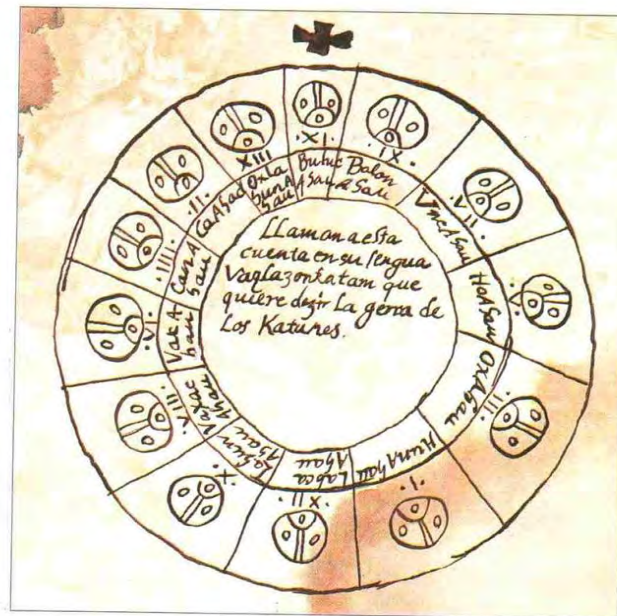 Llaman a esta
cuenta en su lengua
Vazlazonkatam que
quiere dezir La gerra de
Los Katunes.
.XI.
Buluc
Ahau
.IX.
Bolon
Ahau
.VII.
Vuc Ahau
.V.
Ho Ahau
.III.
Ox Ahau
.I.
Hun Ahau
.XII.
Lahca
Ahau
.X.
Lahun
Ahau
.VIII.
Vaxac
Ahau
.VI.
Vac A
hau
.IIII.
Can A
hau
.II.
Ca Ahau
.XIII.
Oxla
hun A
hau